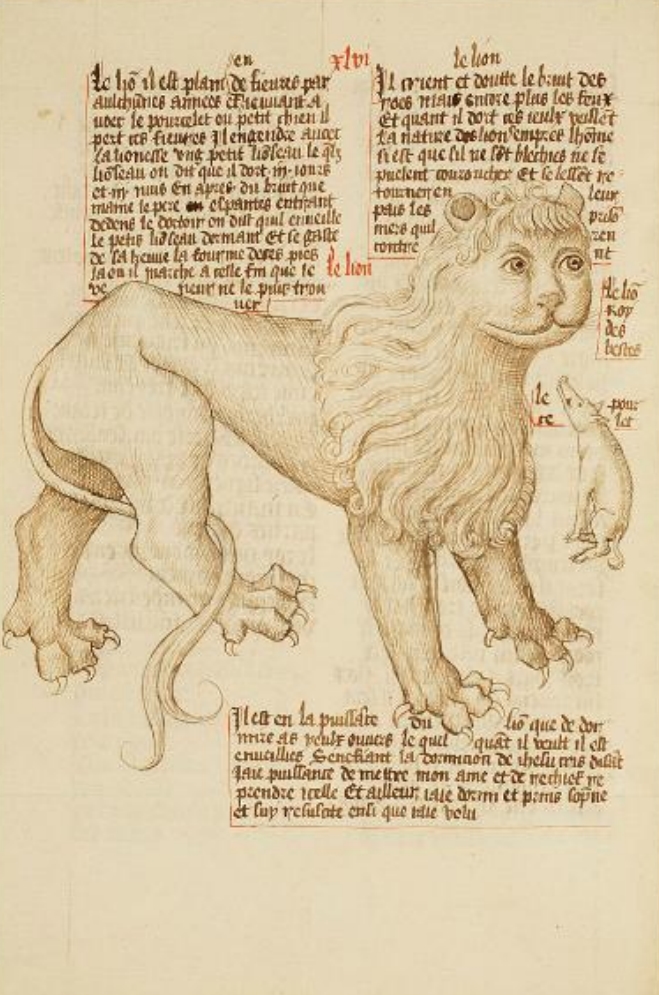 en xlvi le lion
Le liõ il est plain de fieures par
aulchunes annees et
voer le pourcelet ou petit chien il
pert ces fieures Il engendre avec
la lionesse ung petit lioseau le qlz
lioseau on dit que il dort iij iours
et iij nuis En apres du bruit que
maine le pere en espantes entrant
dedens le dortoir on dist quil enueille
le petit lioseau dormant Et se gaste
de sa keuue la fourme de ses pies
la ou il marche a celle fin que le
ve neur ne le puis trou
uer
Il crient et doutte le bruit des
roes mais encore plus les feux
Et quant il dort ces ieulx veillēt
La nature des lion sempres lhōme
si est que sil ne sōt blechies ne se
puelent couroucher Et se
tournerent leur
pais les
mers quil
contre nt
le lion
Le liõ
roy
des
bestes
le pour
ce let
Il est en la puissāce du liõ que de dor
mire as yeulx ouuers le quel quāt il veult il est
enueillies Senefiant la dormicion de ihesu cris disāt
Jaie puissance de mettre mon ame et de rechief re
prendre icelle Et ailleur iaie dormi et prins sopne
et suy resuscite ensi que iaie volu